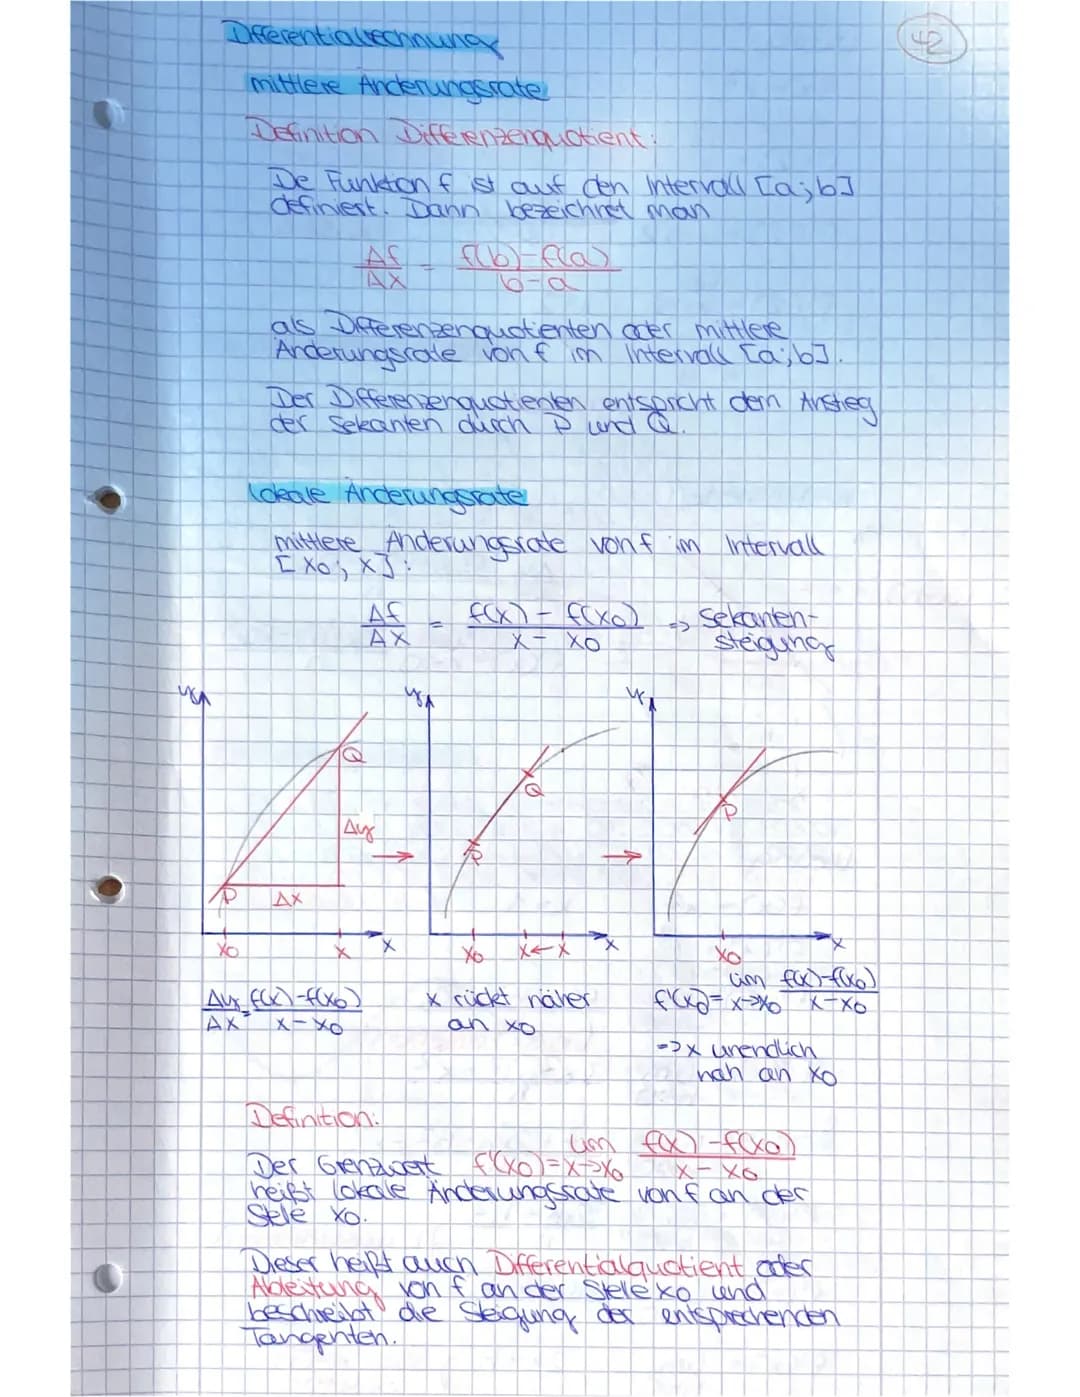 Differentialrechnung
42
mittlere Änderungsrate
Definition Differenzenquotient:
De Funktion f ist auf den Intervall [a;b]
definiert. Dann bezeichnet man
Δf/Δx = f(b)-f(a)/b-a
als Differenzenquotienten oder mittlere
Änderungsrate von f im Intervall [a;b].
Der Differenzenquotienten entspricht dem Anstieg
der Sekanten durch P und Q.
lokale Änderungsrate
mittlere Änderungsrate von f im Intervall
[x0; x]:
Δf/Δx = f(x) - f(x0)/x - x0 => Sekanten-
steigung
y
Q
Δy
P
Δx
x0
x
x
y
Q
P
x0
x←x
x
y
P
x0
x
Δy/Δx = f(x)-f(x0)/x-x0
x rückt näher
an x0
f'(x0)= lim x→x0 f(x)-f(x0)/x-x0
=> x unendlich
nah an x0
Definition:
Der Grenzwert f'(x0)= lim x→x0 f(x)-f(x0)/x-x0
heißt lokale Änderungsrate von f an der
Stelle x0.
Dieser heißt auch Differentialquotient oder
Ableitung von f an der Stelle x0 und
beschreibt die Steigung der entsprechenden
Tangenten.